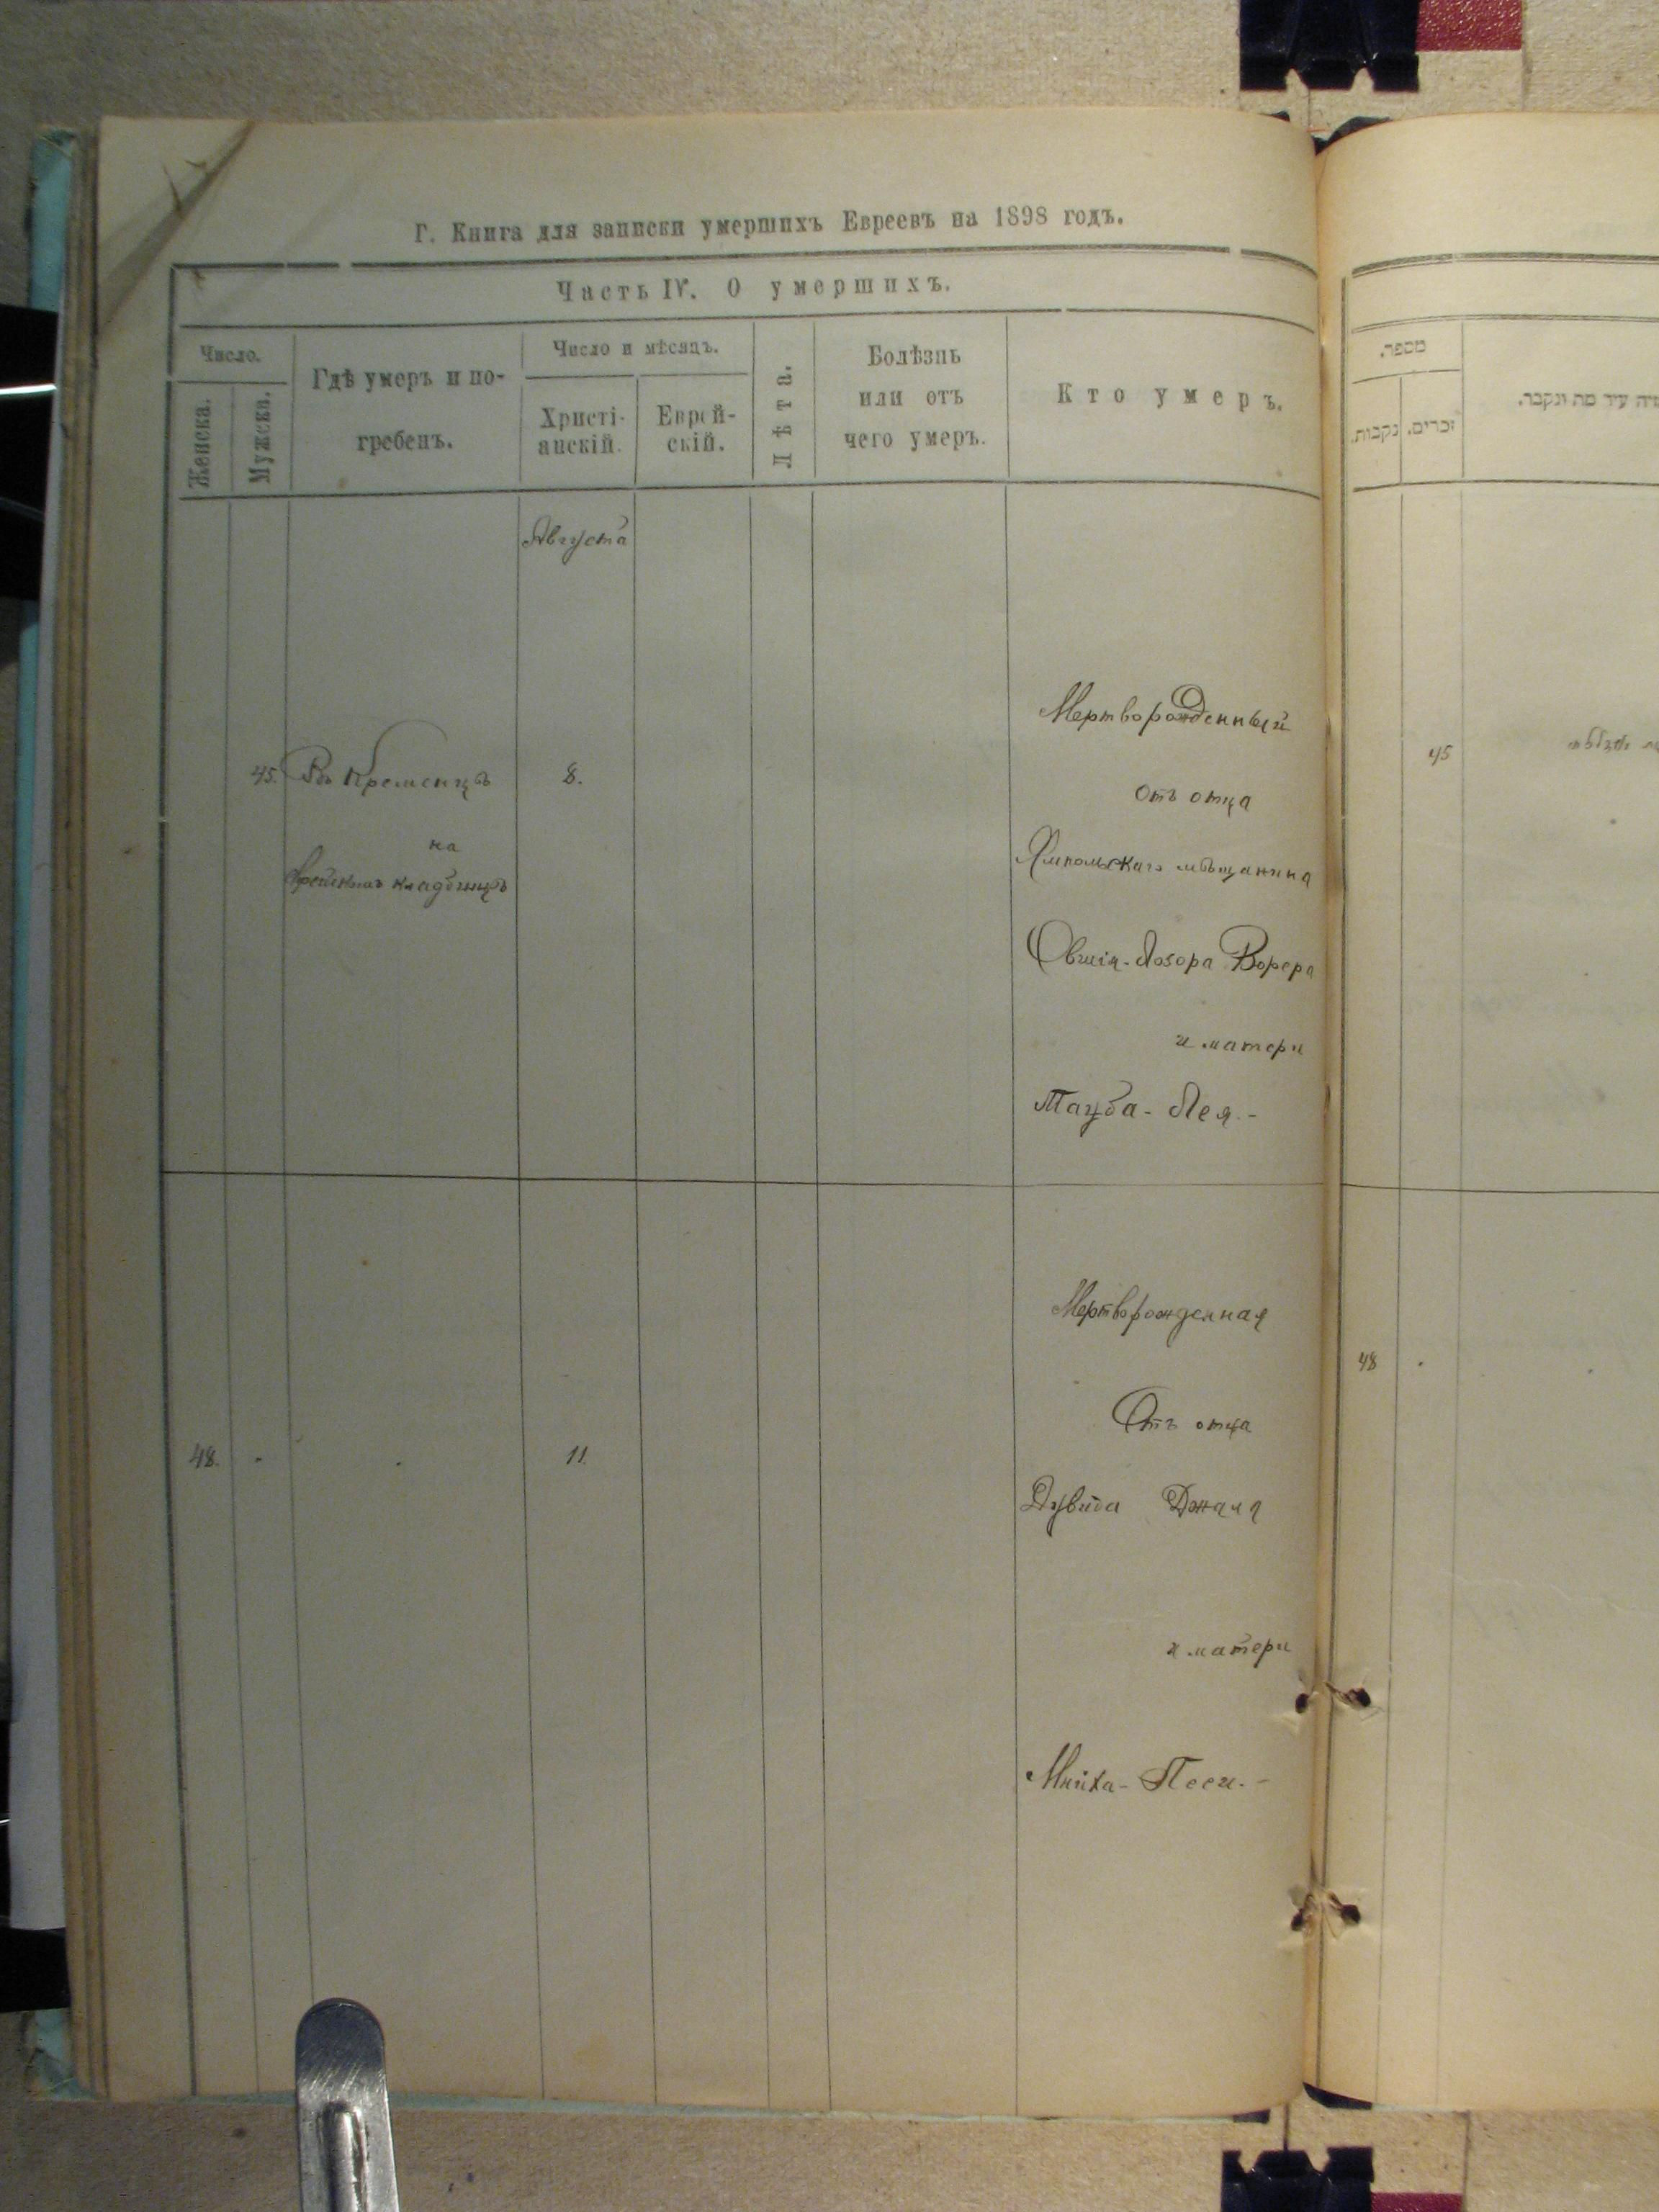 Г. Книга для записки умершихъ Евреевъ на 1898 годъ.
Часть IV. О умершихъ.
Число.
Женска.
Мужска.
Гдѣ умеръ и по-
гребенъ.
Число и мѣсяцъ.
Христі-
анскій.
Еврей-
скій.
Лѣта.
Болѣзнь
или отъ
чего умеръ.
Кто умеръ.
Августа
45.
Въ Кременцѣ
на
еврейскомъ кладбищѣ
8.
Мертворожденный
отъ отца
Ямпольскаго мѣщанина
Овшія-Лозора
и матери
Тауба-Лея.-
48.
11.
Мертворожденная
Отъ отца
Дувида
и матери
Песи.-
מספר.
זכרים.
נקבות.
עיר מת ונקבר.
45
48